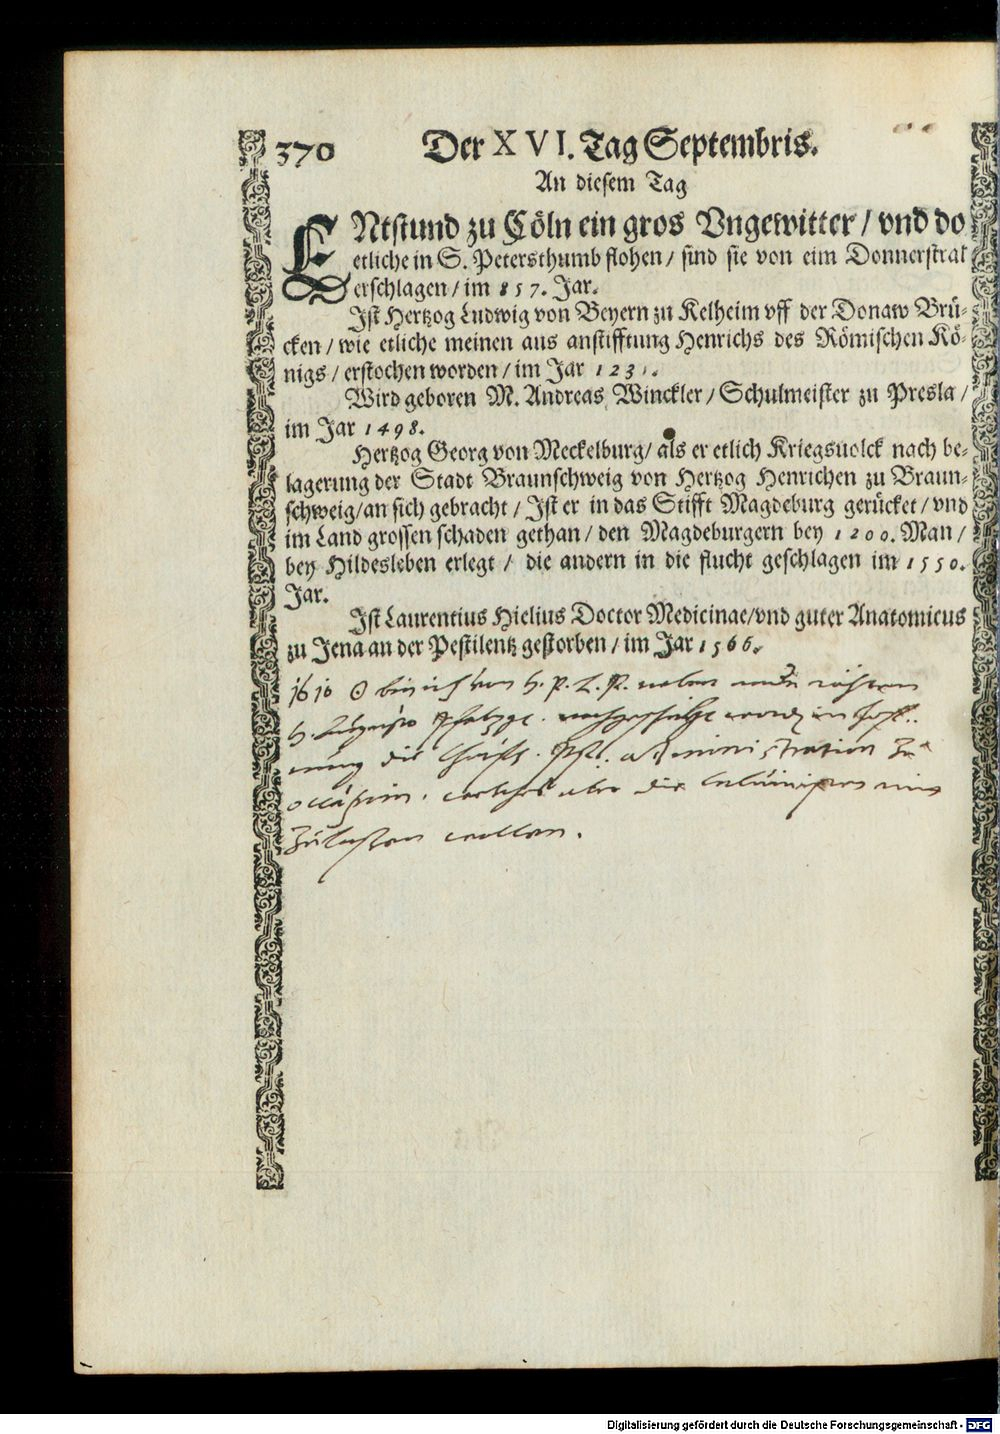 370 Der XVI. Tag Septembris.
An diesem Tag
ENtstund zu Cöln ein gros Vngewitter / vnd do
etliche in S. Petersthumb flohen / sind sie von eim Donnerstral
erschlagen / im 857. Jar.
Ist Hertzog Ludwig von Beyern zu Kelheim vff der Donaw Brü-
cken / wie etliche meinen aus anstifftung Henrichs des Römischen Kö-
nigs / erstochen worden / im Jar 1231.
Wird geboren M. Andreas Winckler / Schulmeister zu Presla /
im Jar 1498.
Hertzog Georg von Meckelburg / als er etlich Kriegsuolck nach be-
lagerung der Stadt Braunschweig von Hertzog Henrichen zu Braun-
schweig / an sich gebracht / Ist er in das Stifft Magdeburg gerücket / vnd
im Land grossen schaden gethan / den Magdeburgern bey 1200. Man /
bey Hildesleben erlegt / die andern in die flucht geschlagen im 1550.
Jar.
Ist Laurentius Hielius Doctor Medicinae / vnd guter Anatomicus
zu Jena an der Pestilentz gestorben / im Jar 1566.
1610 bin ich von
administration zu
wollen.
Digitalisierung gefördert durch die Deutsche Forschungsgemeinschaft - DFG